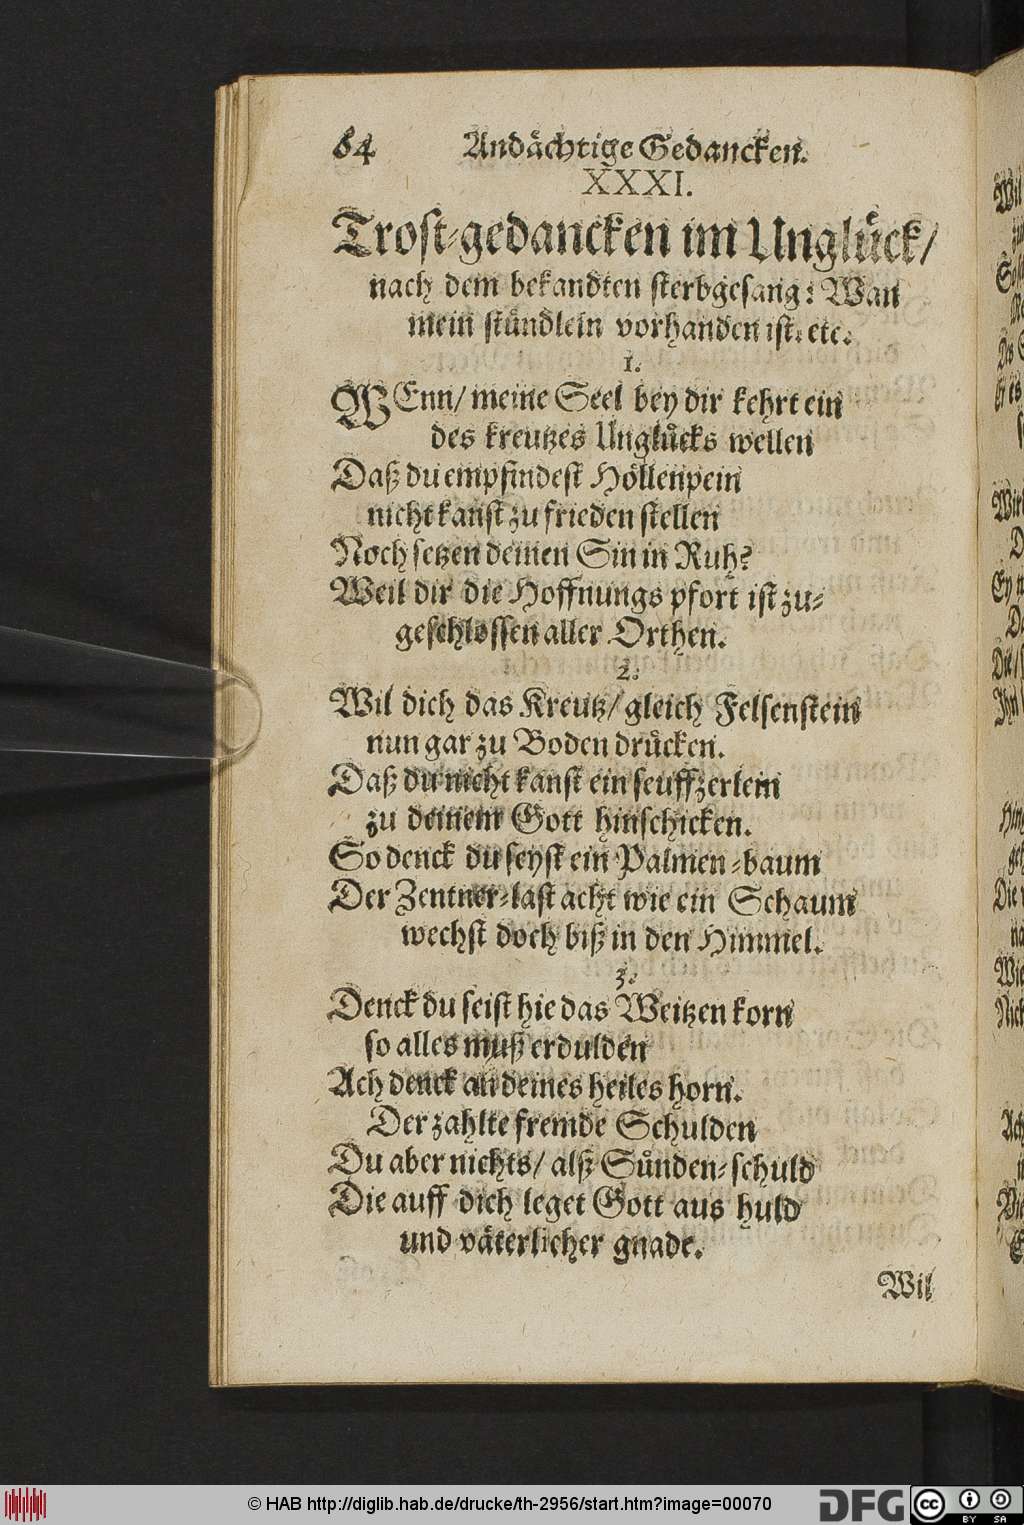 64 Andächtige Gedancken.
XXXI.
Trost-gedancken im Unglück/
nach dem bekandten sterbgesang: Wan
mein stündlein vorhanden ist. etc.
1.
WEnn/ meine Seel bey dir kehrt ein
des kreutzes Unglücks wellen
Daß du empfindest Höllenpein
nicht kanst zu frieden stellen
Noch setzen deinen Sin in Ruh?
Weil dir die Hoffnungs pfort ist zu-
geschlossen aller Orthen.
2.
Wil dich das Kreutz/ gleich Felsenstein
nun gar zu Boden drücken.
Daß du nicht kanst ein seuffzerlein
zu deinem Gott hinschicken.
So denck du seyst ein Palmen-baum
Der Zentner-last acht wie ein Schaum
wechst doch biß in den Himmel.
3.
Denck du seist hie das Weitzen korn
so alles muß erdulden
Ach denck an deines heiles horn.
Der zahlte fremde Schulden
Du aber nichts/ alß Sünden-schuld
Die auff dich leget Gott aus huld
und väterlicher gnade.
Wil
© HAB http://diglib.hab.de/drucke/th-2956/start.htm?image=00070
DFG
cc BY SA